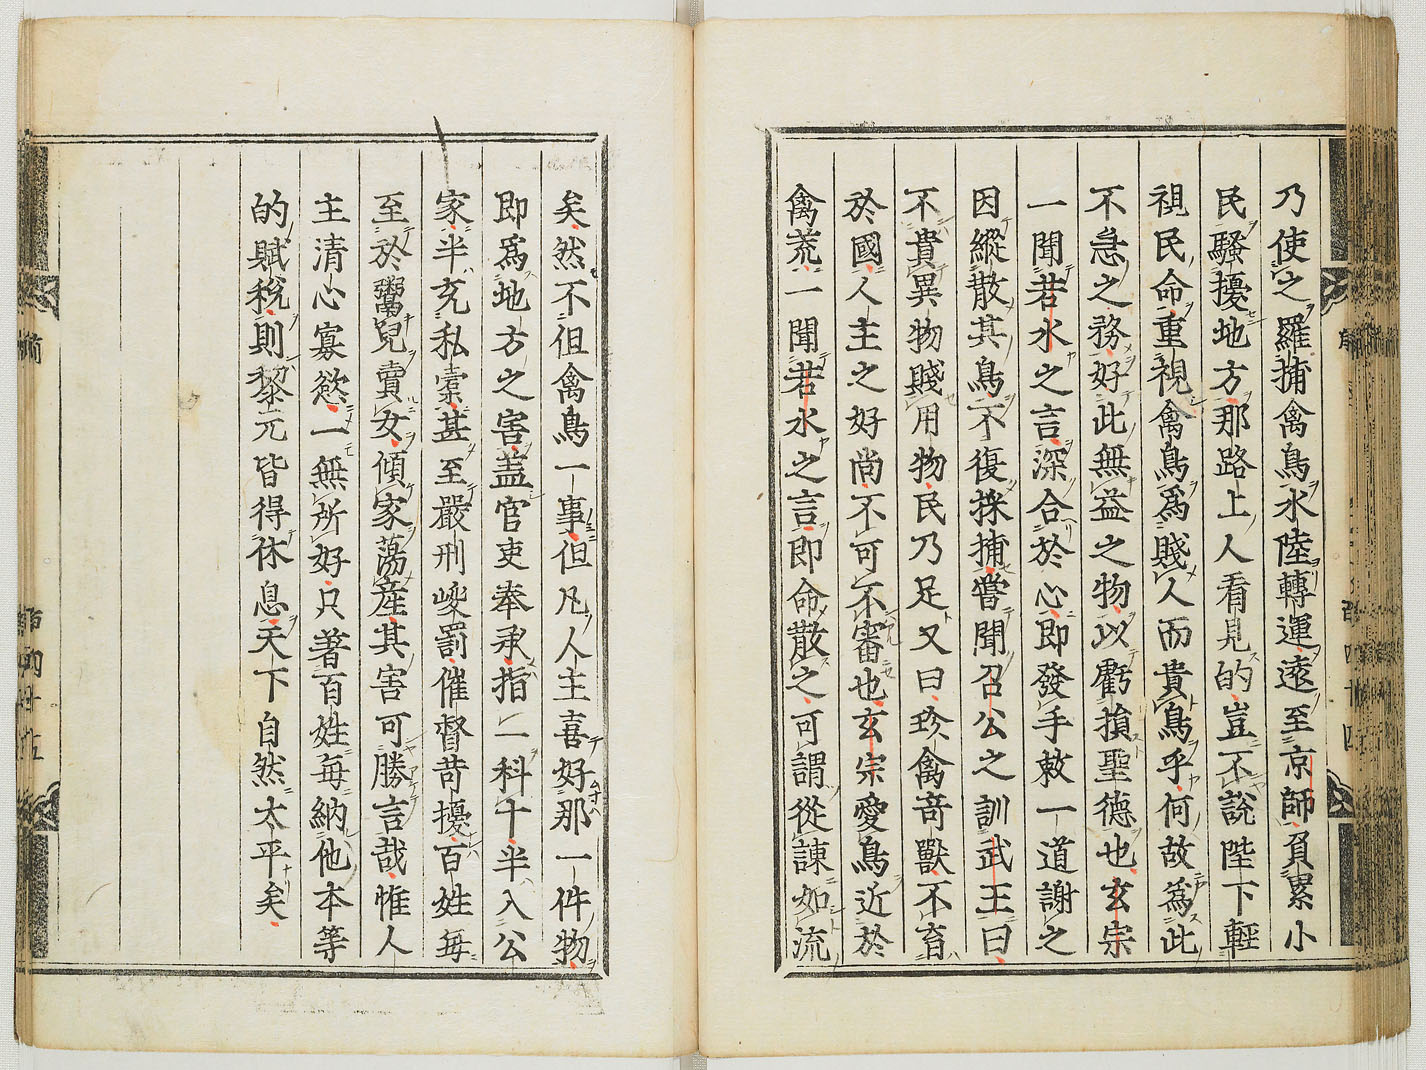 乃使之羅捕禽鳥水陸轉運遠至京師負累小
民騷擾地方那路上人看見的豈不說陛下輕
視民命重視禽鳥爲賤人而貴鳥乎何故爲此
不急之務好此無益之物以虧損聖德也玄宗
一聞若水之言深合於心即發手敕一道謝之
因縱散其鳥不復採捕嘗聞召公之訓武王曰
不貴異物賤用物民乃足又曰珍禽奇獸不育
於國人主之好尚不可不審也玄宗愛鳥近於
禽荒一聞若水之言即命散之可謂從諫如流
矣然不但禽鳥一事但凡人主喜好那一件物
即爲地方之害盖官吏奉承指一科十半入公
家半充私橐甚至嚴刑峻罰催督苛擾百姓每
至於鬻兒賣女傾家蕩産其害可勝言哉惟人
主清心寡慾一無所好只著百姓每納他本等
的賦稅則黎元皆得休息天下自然太平矣